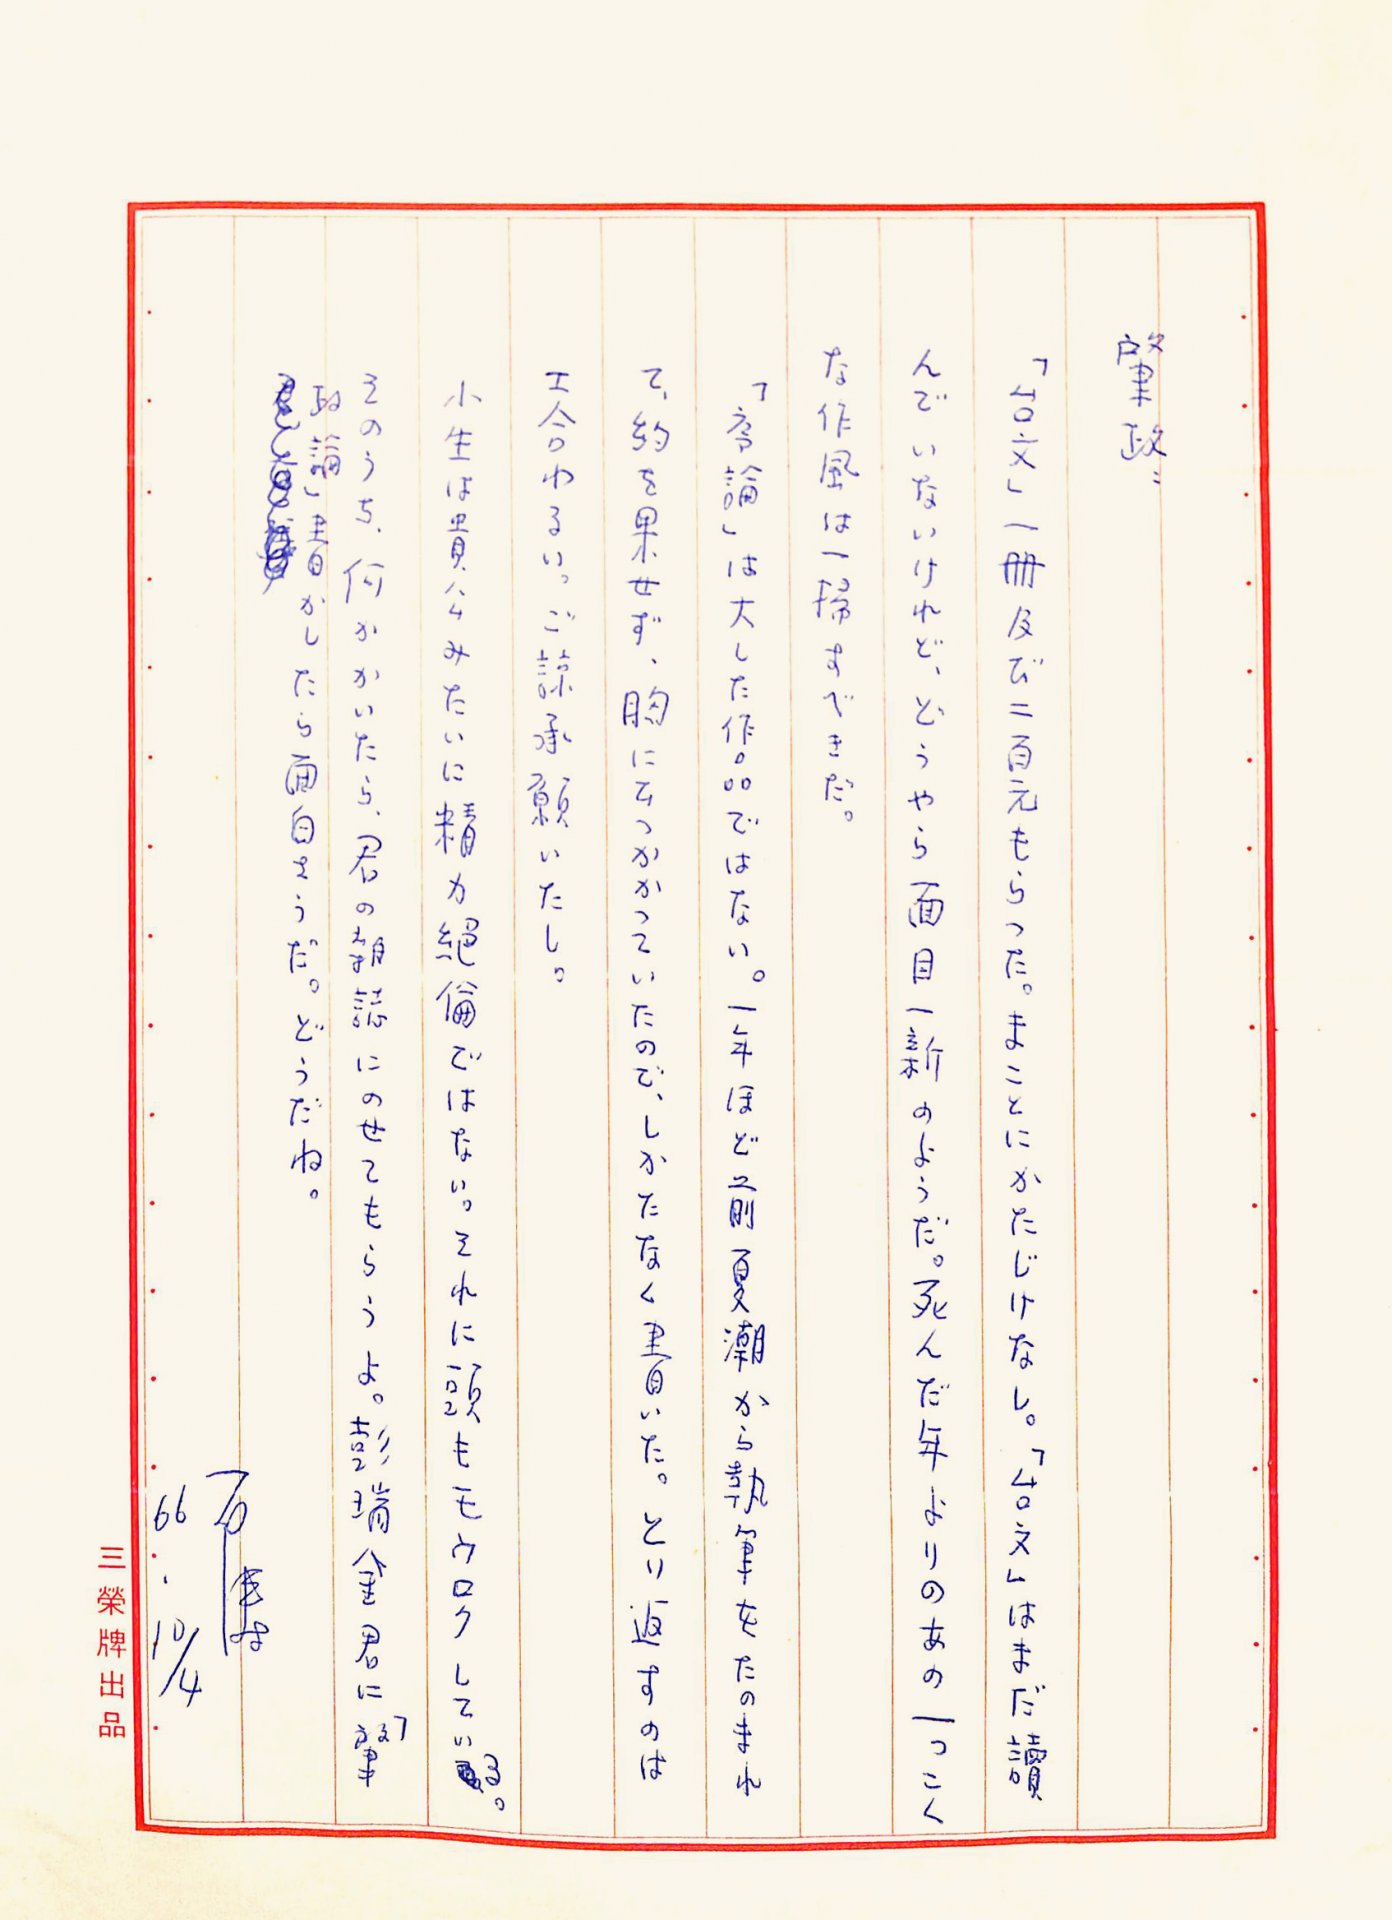 肇政：
「台文」一冊及び二百元もらった。まことにかたじけなし。「台文」はまだ讀
んでいないけれど、どうやら面目一新のようだ。死んだ年よりのあの一っこく
な作風は一掃すべきだ。
「序論」は大した作品ではない。一年ほど前夏潮から執筆をたのまれ
て、約を果せず、胸につっかかっていたので、しかたなく書いた。とり返すのは
工合わるい。ご諒承願いたし。
小生は貴公みたいに精力絶倫ではない。それに頭もモウロクしている。
そのうち、何かかいたら、君の雑誌にのせてもらうよ。彭瑞金君に「肇
政論」書かしたら面白そうだ。どうだね。
石濤
66.10/4
三榮牌出品